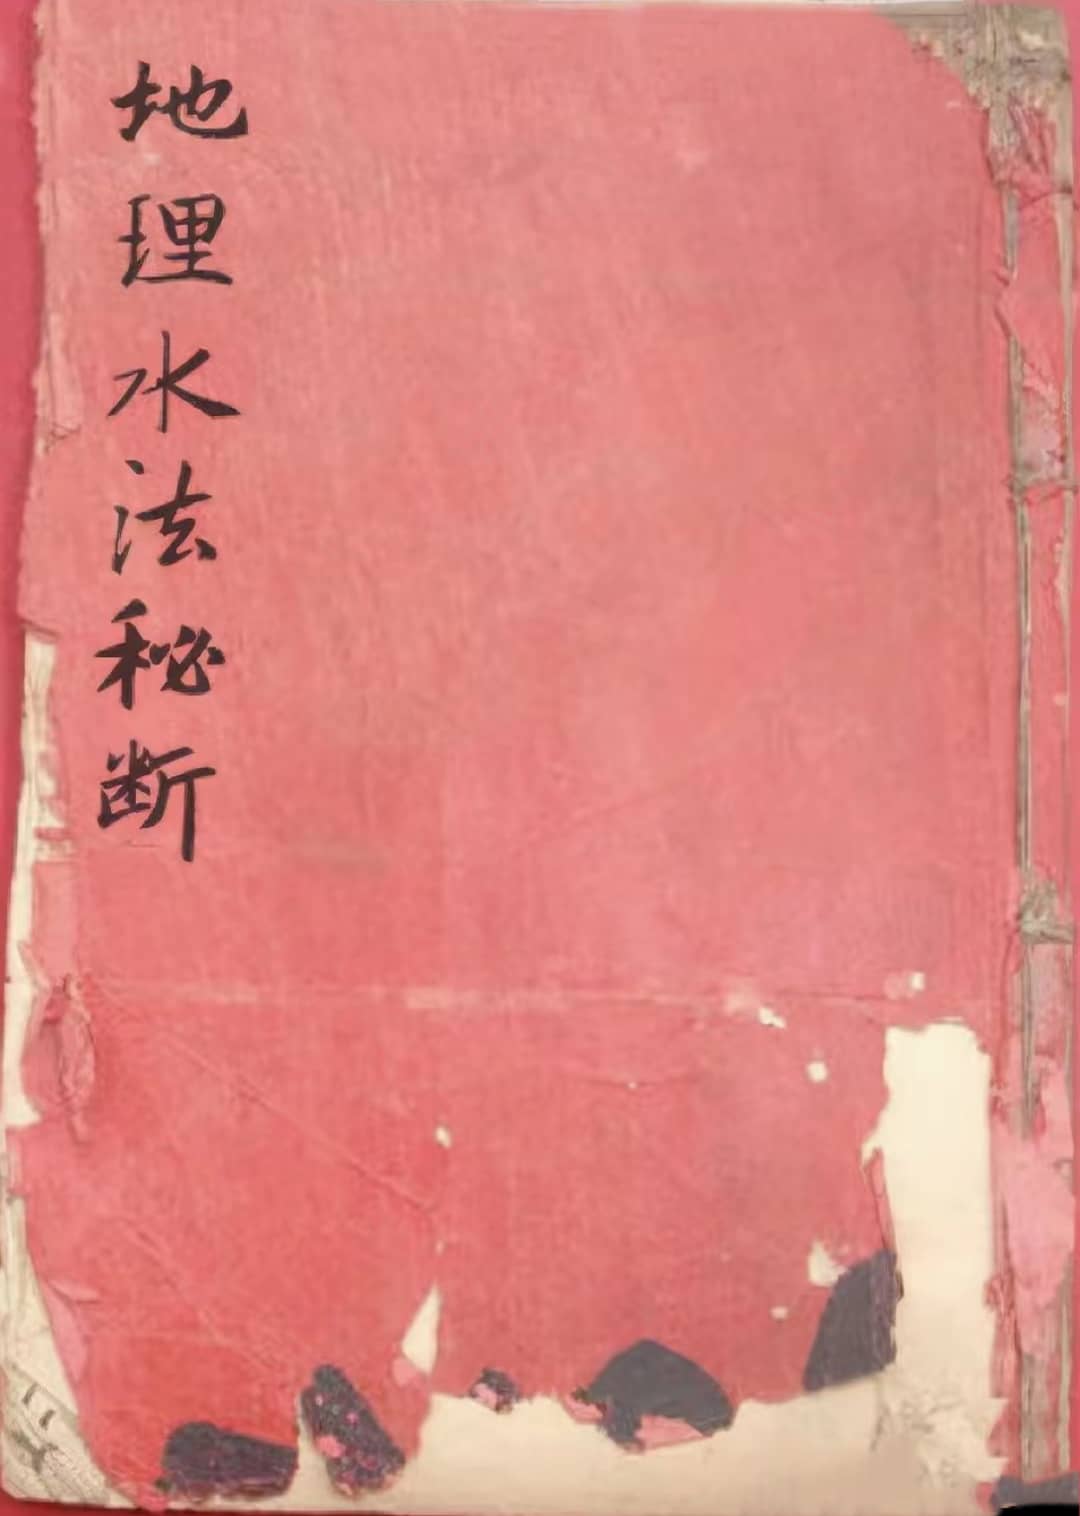 地理水法秘断